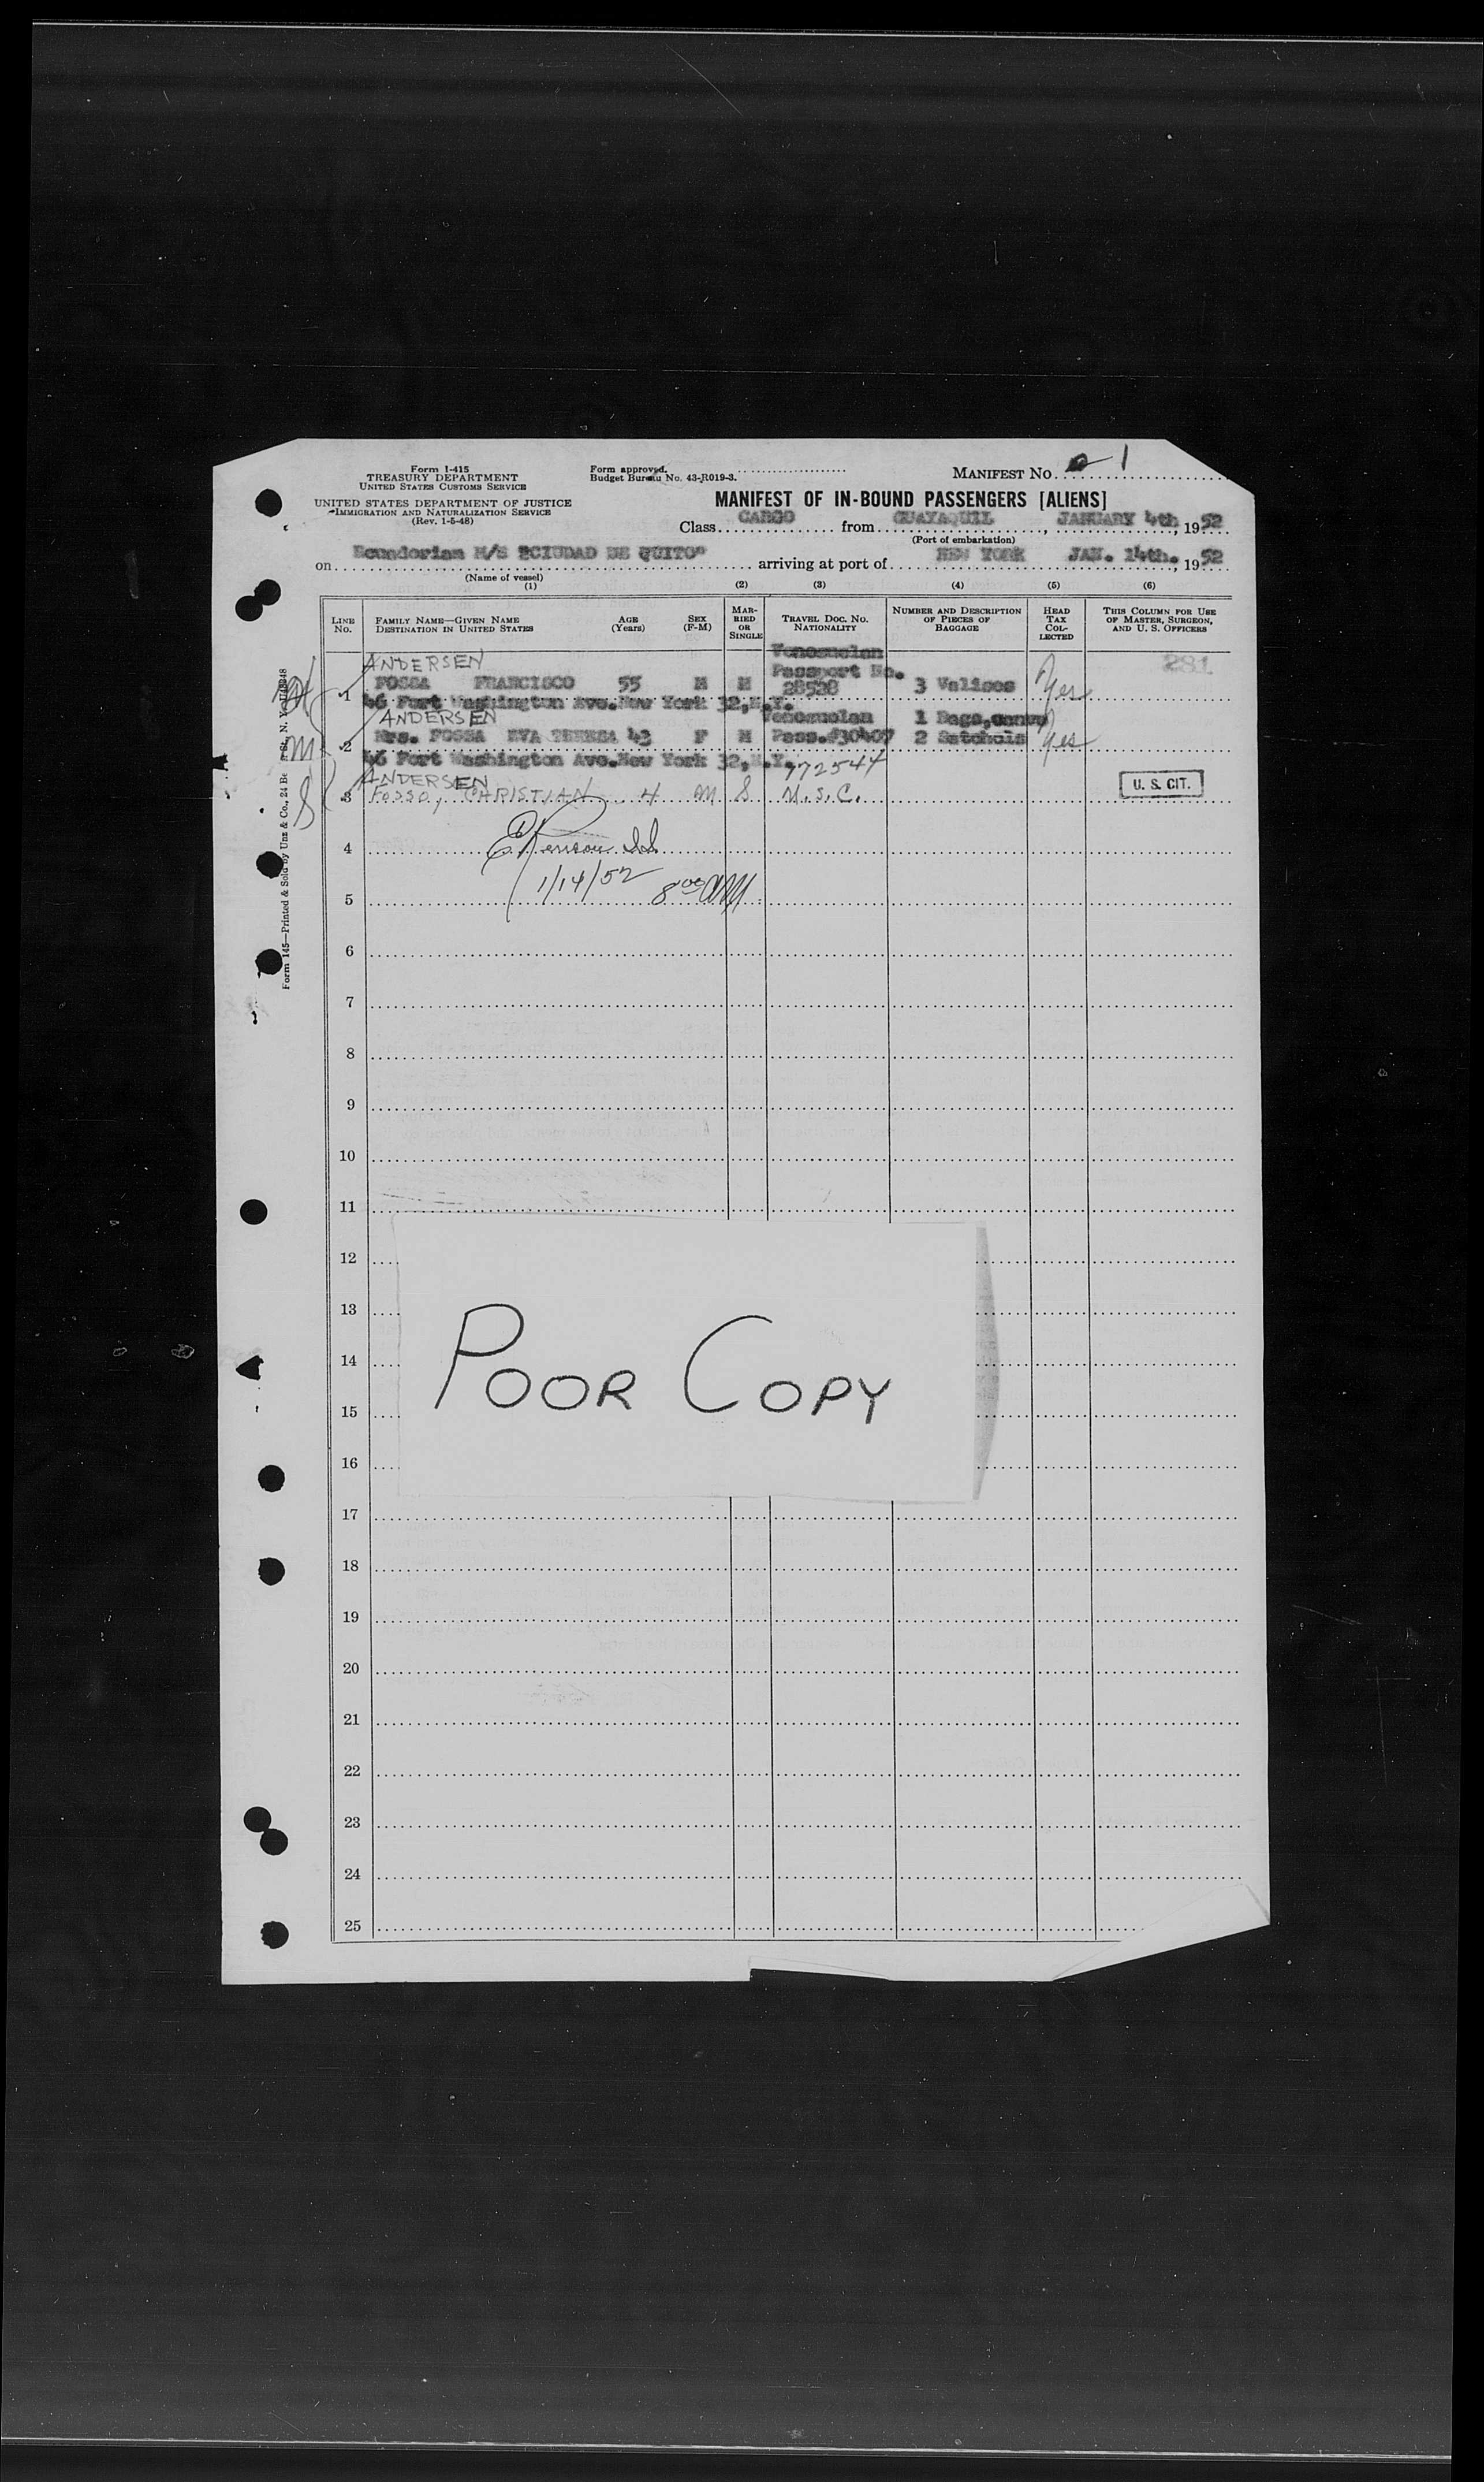 Form I-415
TREASURY DEPARTMENT
UNITED STATES CUSTOMS SERVICE
UNITED STATES DEPARTMENT OF JUSTICE
IMMIGRATION AND NATURALIZATION SERVICE
(Rev. 1-5-48)
Form approved.
Budget Bureau No. 43-R019-3.
MANIFEST NO. 1
MANIFEST OF IN-BOUND PASSENGERS [ALIENS]
Class CARGO from GUAYAQUIL, JANUARY 4th, 1952
(Port of embarkation)
on Ecuadorian M/S "CIUDAD DE QUITO" arriving at port of NEW YORK JAN. 14th., 1952
(Name of vessel)
(1) (2) (3) (4) (5) (6)
LINE NO. FAMILY NAME—GIVEN NAME DESTINATION IN UNITED STATES AGE (Years) SEX (F-M) MARRIED OR SINGLE TRAVEL DOC. NO. NATIONALITY NUMBER AND DESCRIPTION OF PIECES OF BAGGAGE HEAD TAX COLLECTED THIS COLUMN FOR USE OF MASTER, SURGEON, AND U. S. OFFICERS
Venezuelan
ANDERSEN Passport No. 281
1 FOSSA FRANCISCO 55 M M 28528 3 Valises Yes
46 Fort Washington Ave. New York 32, N.Y.
ANDERSEN Venezuelan 1 Bags, canvas
2 Mrs. FOSSA EVA TERESA 43 F M Pass.#30407 2 Satchels Yes
46 Fort Washington Ave. New York 32, N.Y. 772544
ANDERSEN
3 FOSSO, CHRISTIAN 4 M S U.S.C. U. S. CIT.
4
1/14/52 8 00 AM
5
6
7
8
9
10
11
12
13
POOR COPY
14
15
16
17
18
19
20
21
22
23
24
25
M
S